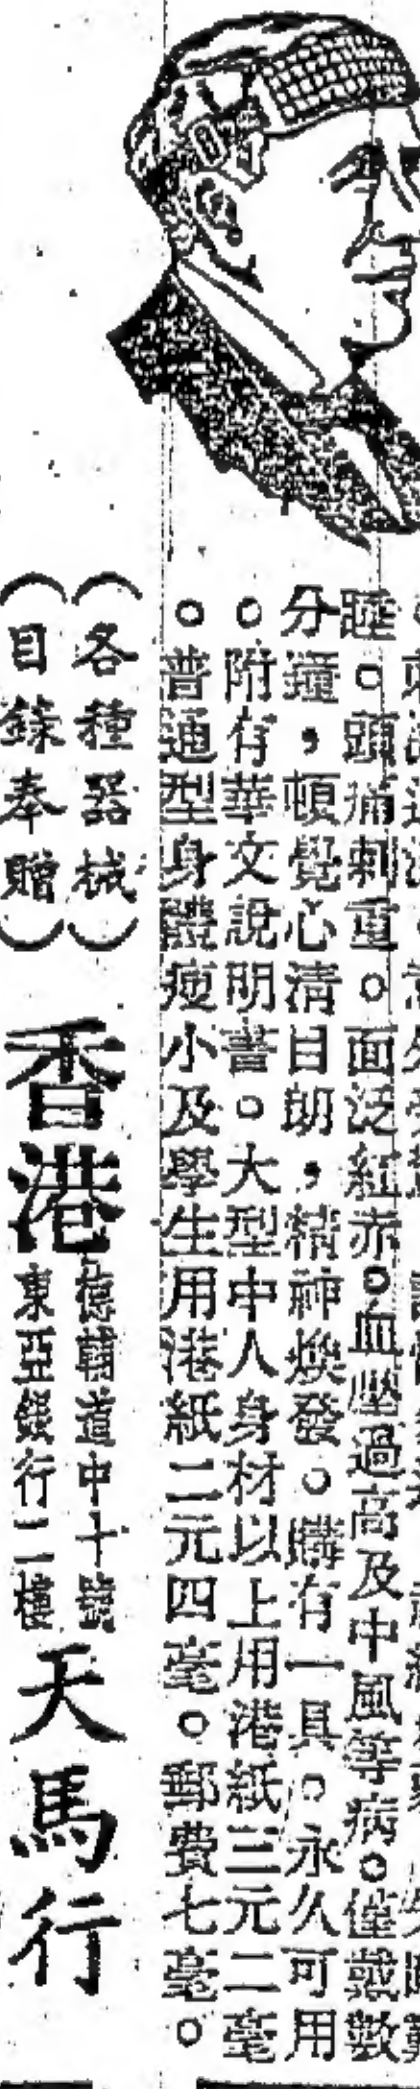 睡。頭痛刺重。面泛紅赤。血壓過高及中風等病。僅戴數
分鐘，頓覺心清目朗，精神煥發。購有一具。永久可用
。附有華文說明書。大型中人身材以上用港紙三元二毫
。普通型身體瘦小及學生用港紙二元四毫。郵費七毫。
（各種器械）
（目錄奉贈）
香港
德輔道中十號
東亞銀行二樓
天馬行